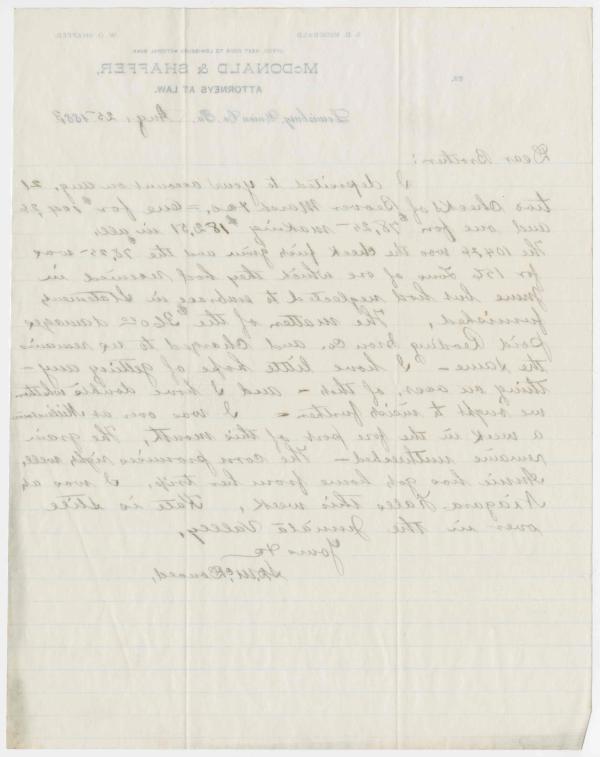 S. D. MCDONALD W. O. SHAFFER
OFFICE, NEXT DOOR TO LEWISBURG NATIONAL BANK
McDONALD & SHAFFER,
ATTORNEYS AT LAW.
Lewisburg, Union Co. Pa. Aug. 25 188
Dear Brother:
I deposited to your account on Aug. 21
two checks of Brown March &c, = one for $104,26
and one for $78,25 - making $182,51 in all.
The 104,26 was the check first given and the $78,25 was
for 156 Tons of ore which they had received in
June but had neglected to embrace in statement
furnished, The matter of the damages
paid Reading Iron Co. and charged to us remains
the same - I have little hope of getting any-
thing on acct. of this - and I have doubts whether
we ought to insist further = I was over at
a week in the fore part of this month, The grain
remains unthreshed - The corn promises right well,
has got home from her trip, I was at
Niagara Falls this week, Kate is still
over in the Juniata Valley,
Yours &c
McDonald,